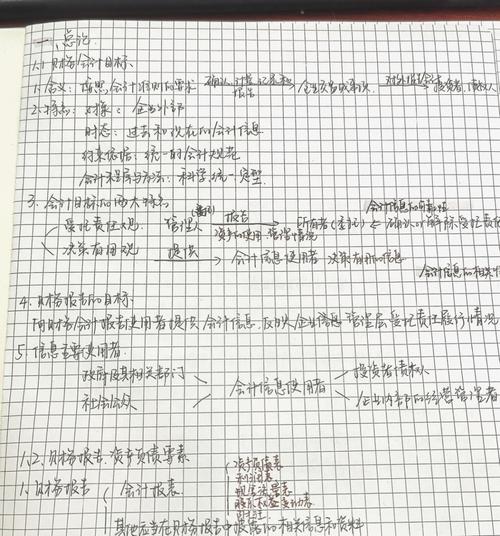 一、总论
1.1 财务会计目标
1. 含义：按照会计准则的要求 确认、计量、记录和报告 → 企业交易或事项 对外报告 → 投资者、债权人
2. 特点：对象：企业外部
时态：过去和现在的会计信息
约束依据：统一的会计规范
会计程序与方法：科学统一定型
3. 会计目标的两大观点
受托责任观：管理人 报告 资源的使用、管理情况 → 所有者(委托) ← 确认、解除受托责任
决策有用观 提供 → 会计信息使用者 决策有用的信息
会计信息的相关性
4. 财务报告的目标
向财务会计报告使用者提供会计信息，反映企业信息管理层受托责任履行情况
5. 信息主要使用者：
政府及其相关部门
社会公众
会计信息使用者
投资者债权人
企业内部的经营管理者
1.2 财务报告、资产负债要素
1. 财务报告
会计报表
资产负债表
利润表
现金流量表
所有者权益变动表
附注
其他应当在财务报告中披露的相关信息和资料